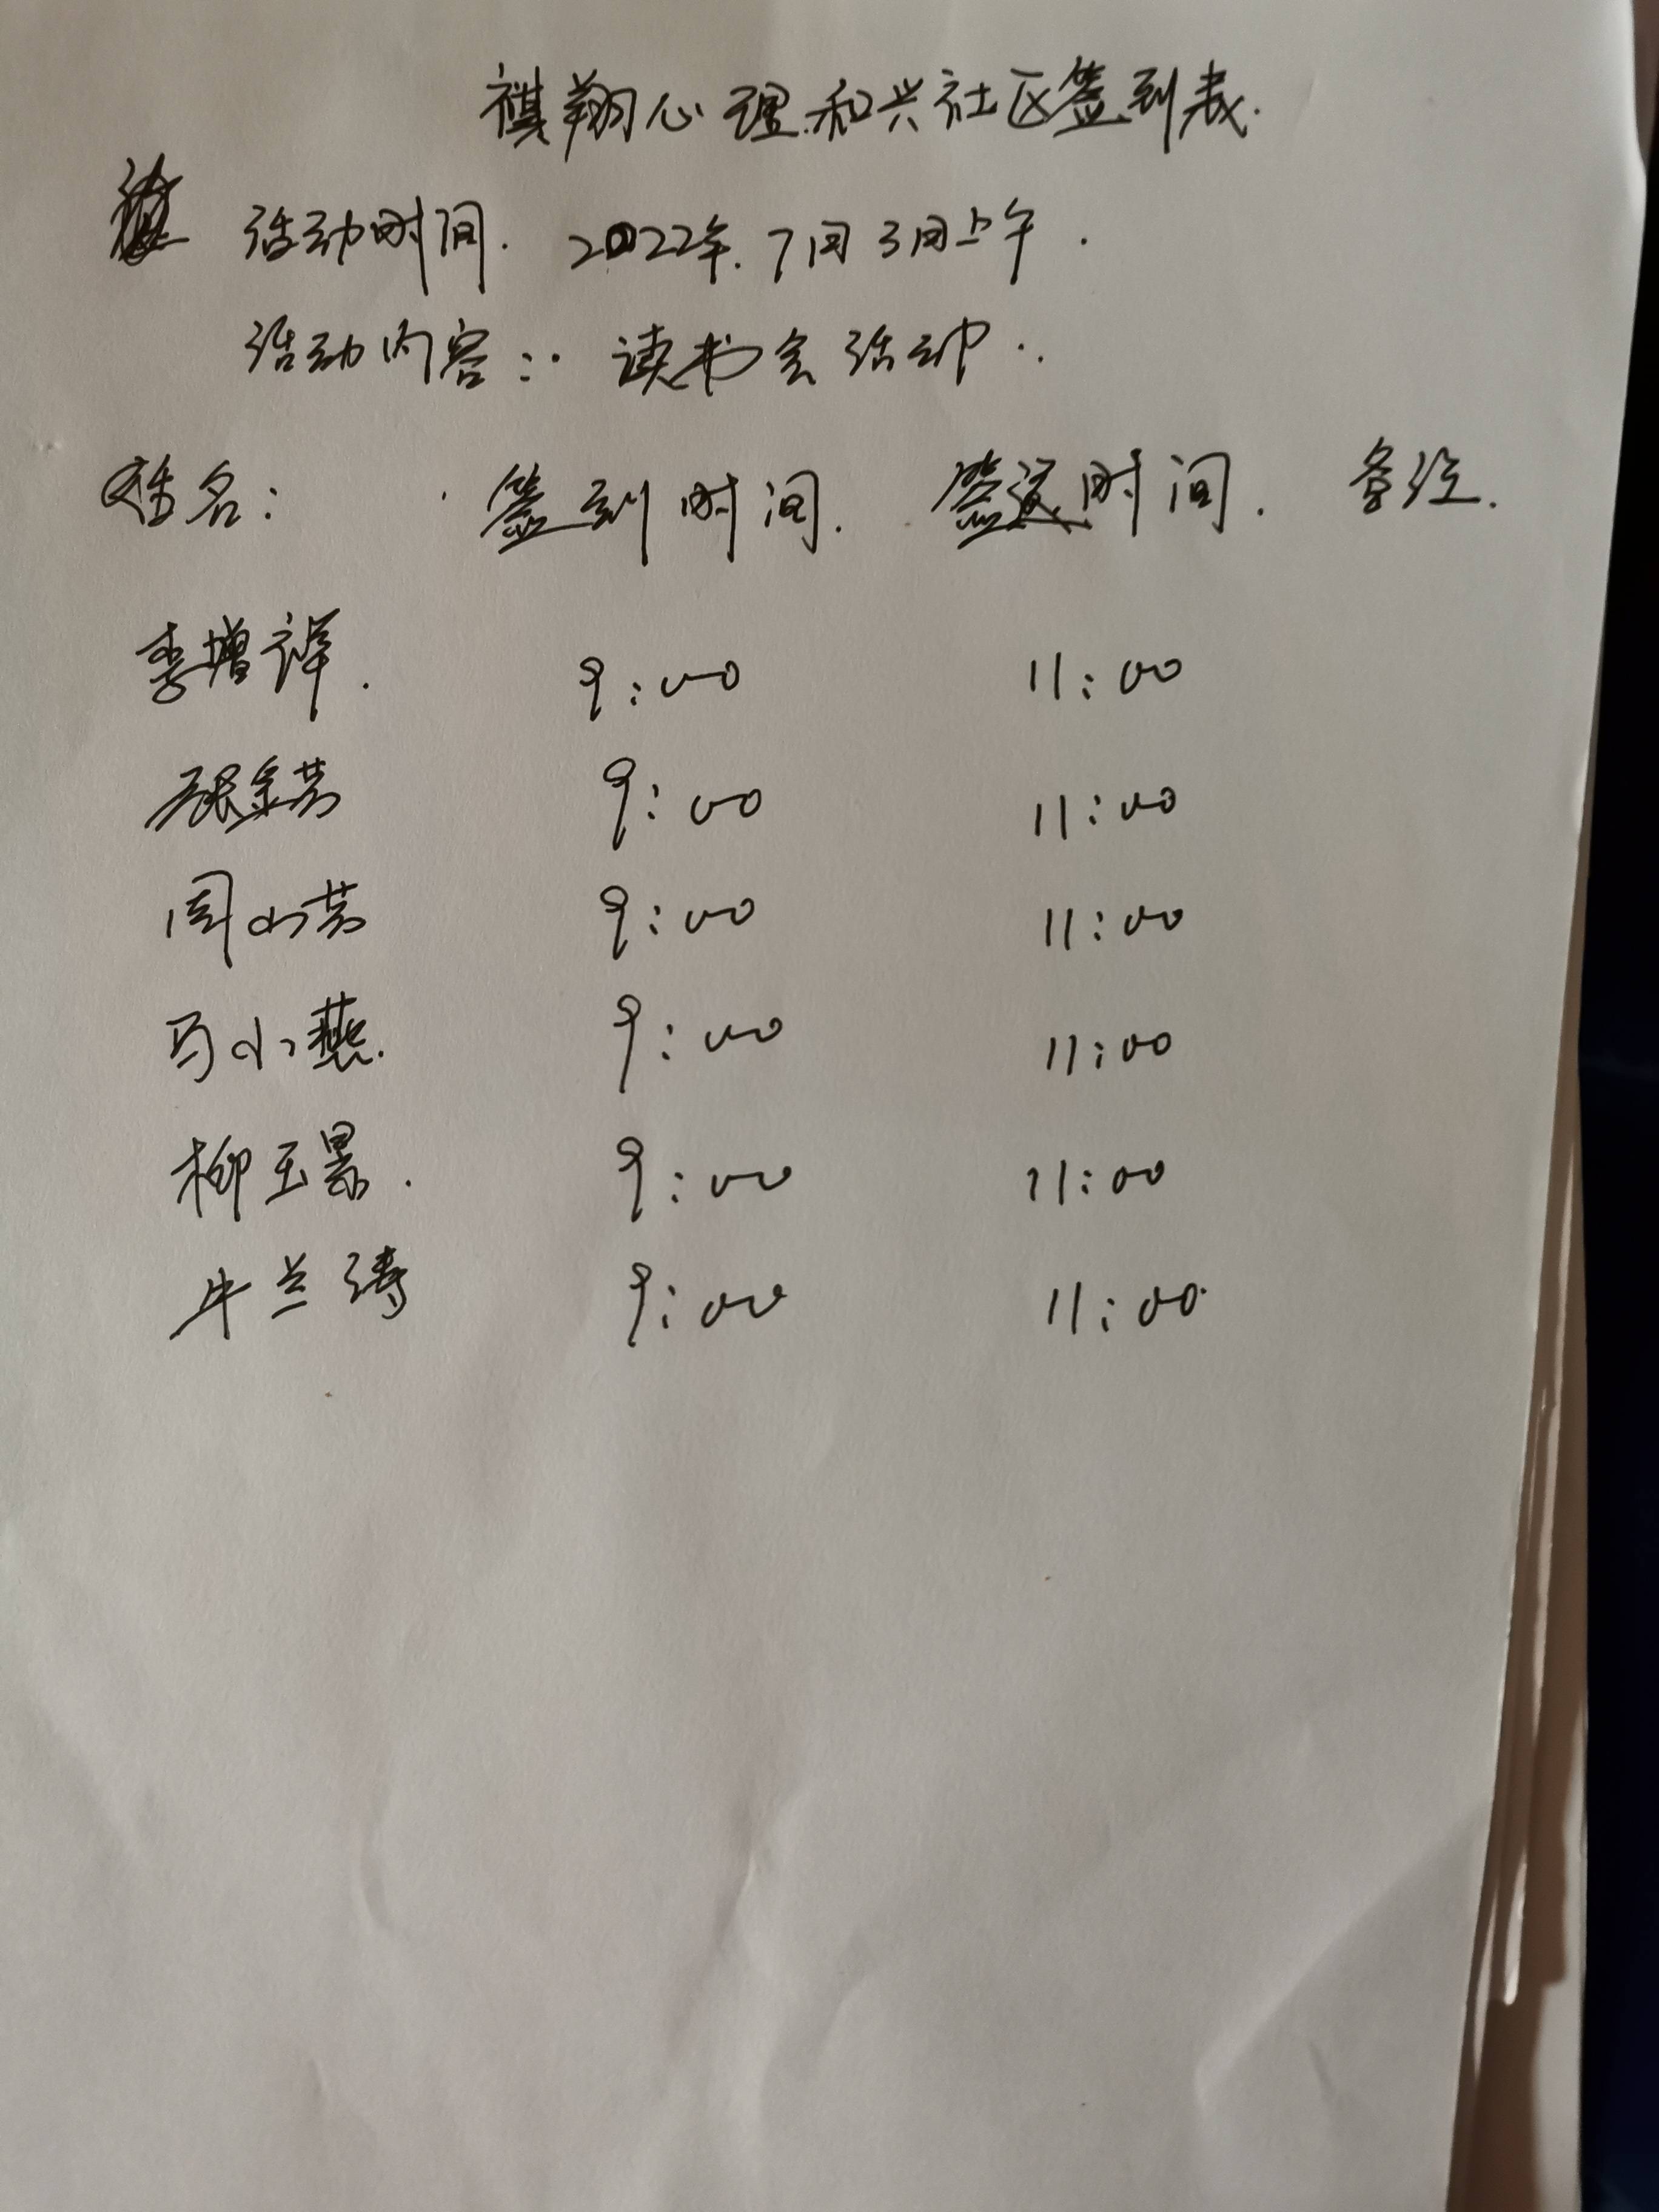 祺翔心理和兴社区签到表.
活动时间. 2022年.7月3日上午.
活动内容: 读书会活动.
姓名: 签到时间. 签退时间. 备注.
李增祥. 9:00 11:00
张金芳 9:00 11:00
周小芳 9:00 11:00
马小燕. 9:00 11:00
柳玉景. 9:00 11:00
牛兰涛 9:00 11:00